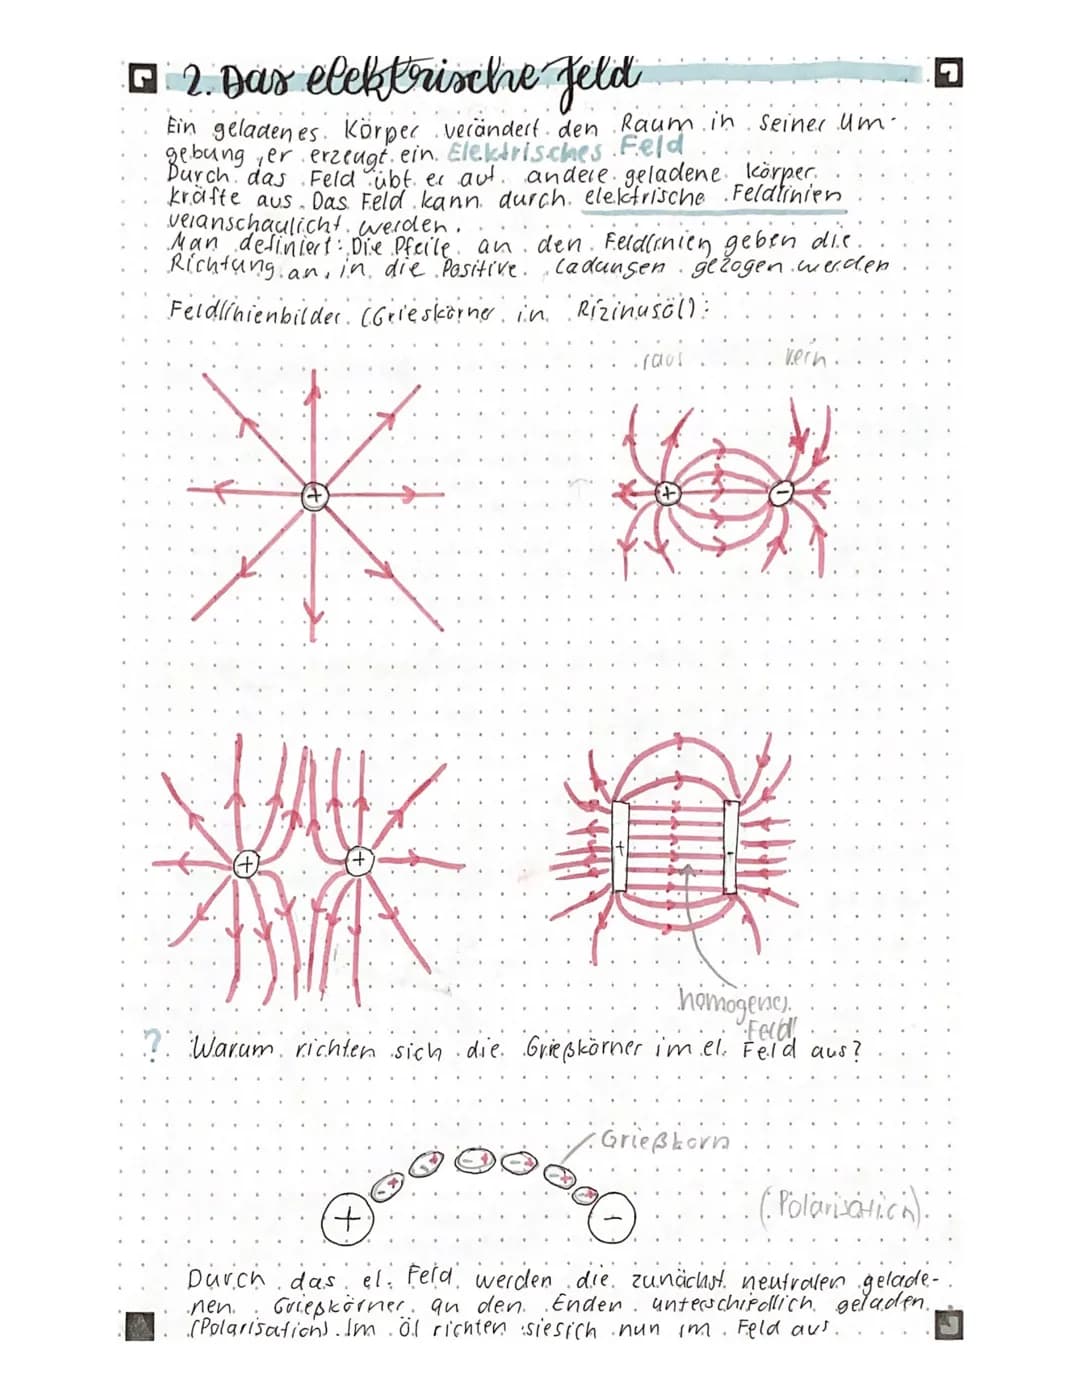 2. Das elektrische Feld
Ein geladenes Körper verändert den Raum in seiner Um-
gebung, er erzeugt ein Elektrisches Feld
Durch das Feld übt er auf andere geladene körper
kräfte aus. Das Feld kann durch elektrische Feldlinien
veranschaulicht werden.
Man definiert: Die Pfeile an den Feldlinien geben die
Richtung an, in die Positive Ladungen gezogen werden
Feldlinienbilder (Grieskörner in Rizinusöl):
raus rein
+ + -
+ + + -
homogenes
Feld!
? Warum richten sich die Grießkörner im el. Feld aus?
Grießkorn
- + - + - + - + - + - +
+ -
(Polarisation)
Durch das el. Feld werden die zunächst neutralen gelade-
nen Grießkörner an den Enden unterschiedlich geladen
(Polarisation). Im Öl richten sie sich nun im Feld aus.